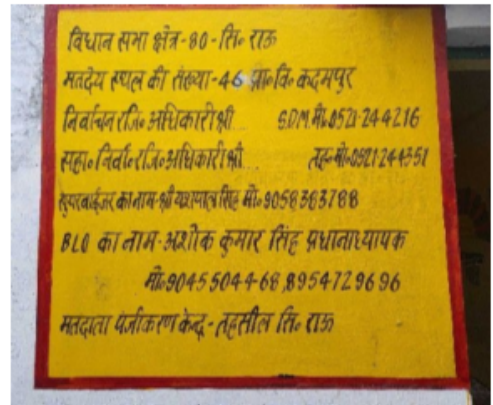 विधान सभा क्षेत्र-80-सि॰ राऊ
मतदेय स्थल की संख्या-46 प्रा॰ वि॰ कदमपुर
निर्वाचन रजि॰ अधिकारी श्री S.D.M. मो॰ 0521-244216
सहा॰ निर्वा॰ रजि॰ अधिकारी श्री तह॰ मो॰ 0521244351
सुपरवाईजर का नाम-श्री यशपाल सिंह मो॰ 9058363788
BLO का नाम-अशोक कुमार सिंह प्रधानाध्यापक
मो॰ 9045504468, 8954729696
मतदाता पंजीकरण केन्द्र-तहसील सि॰ राऊ